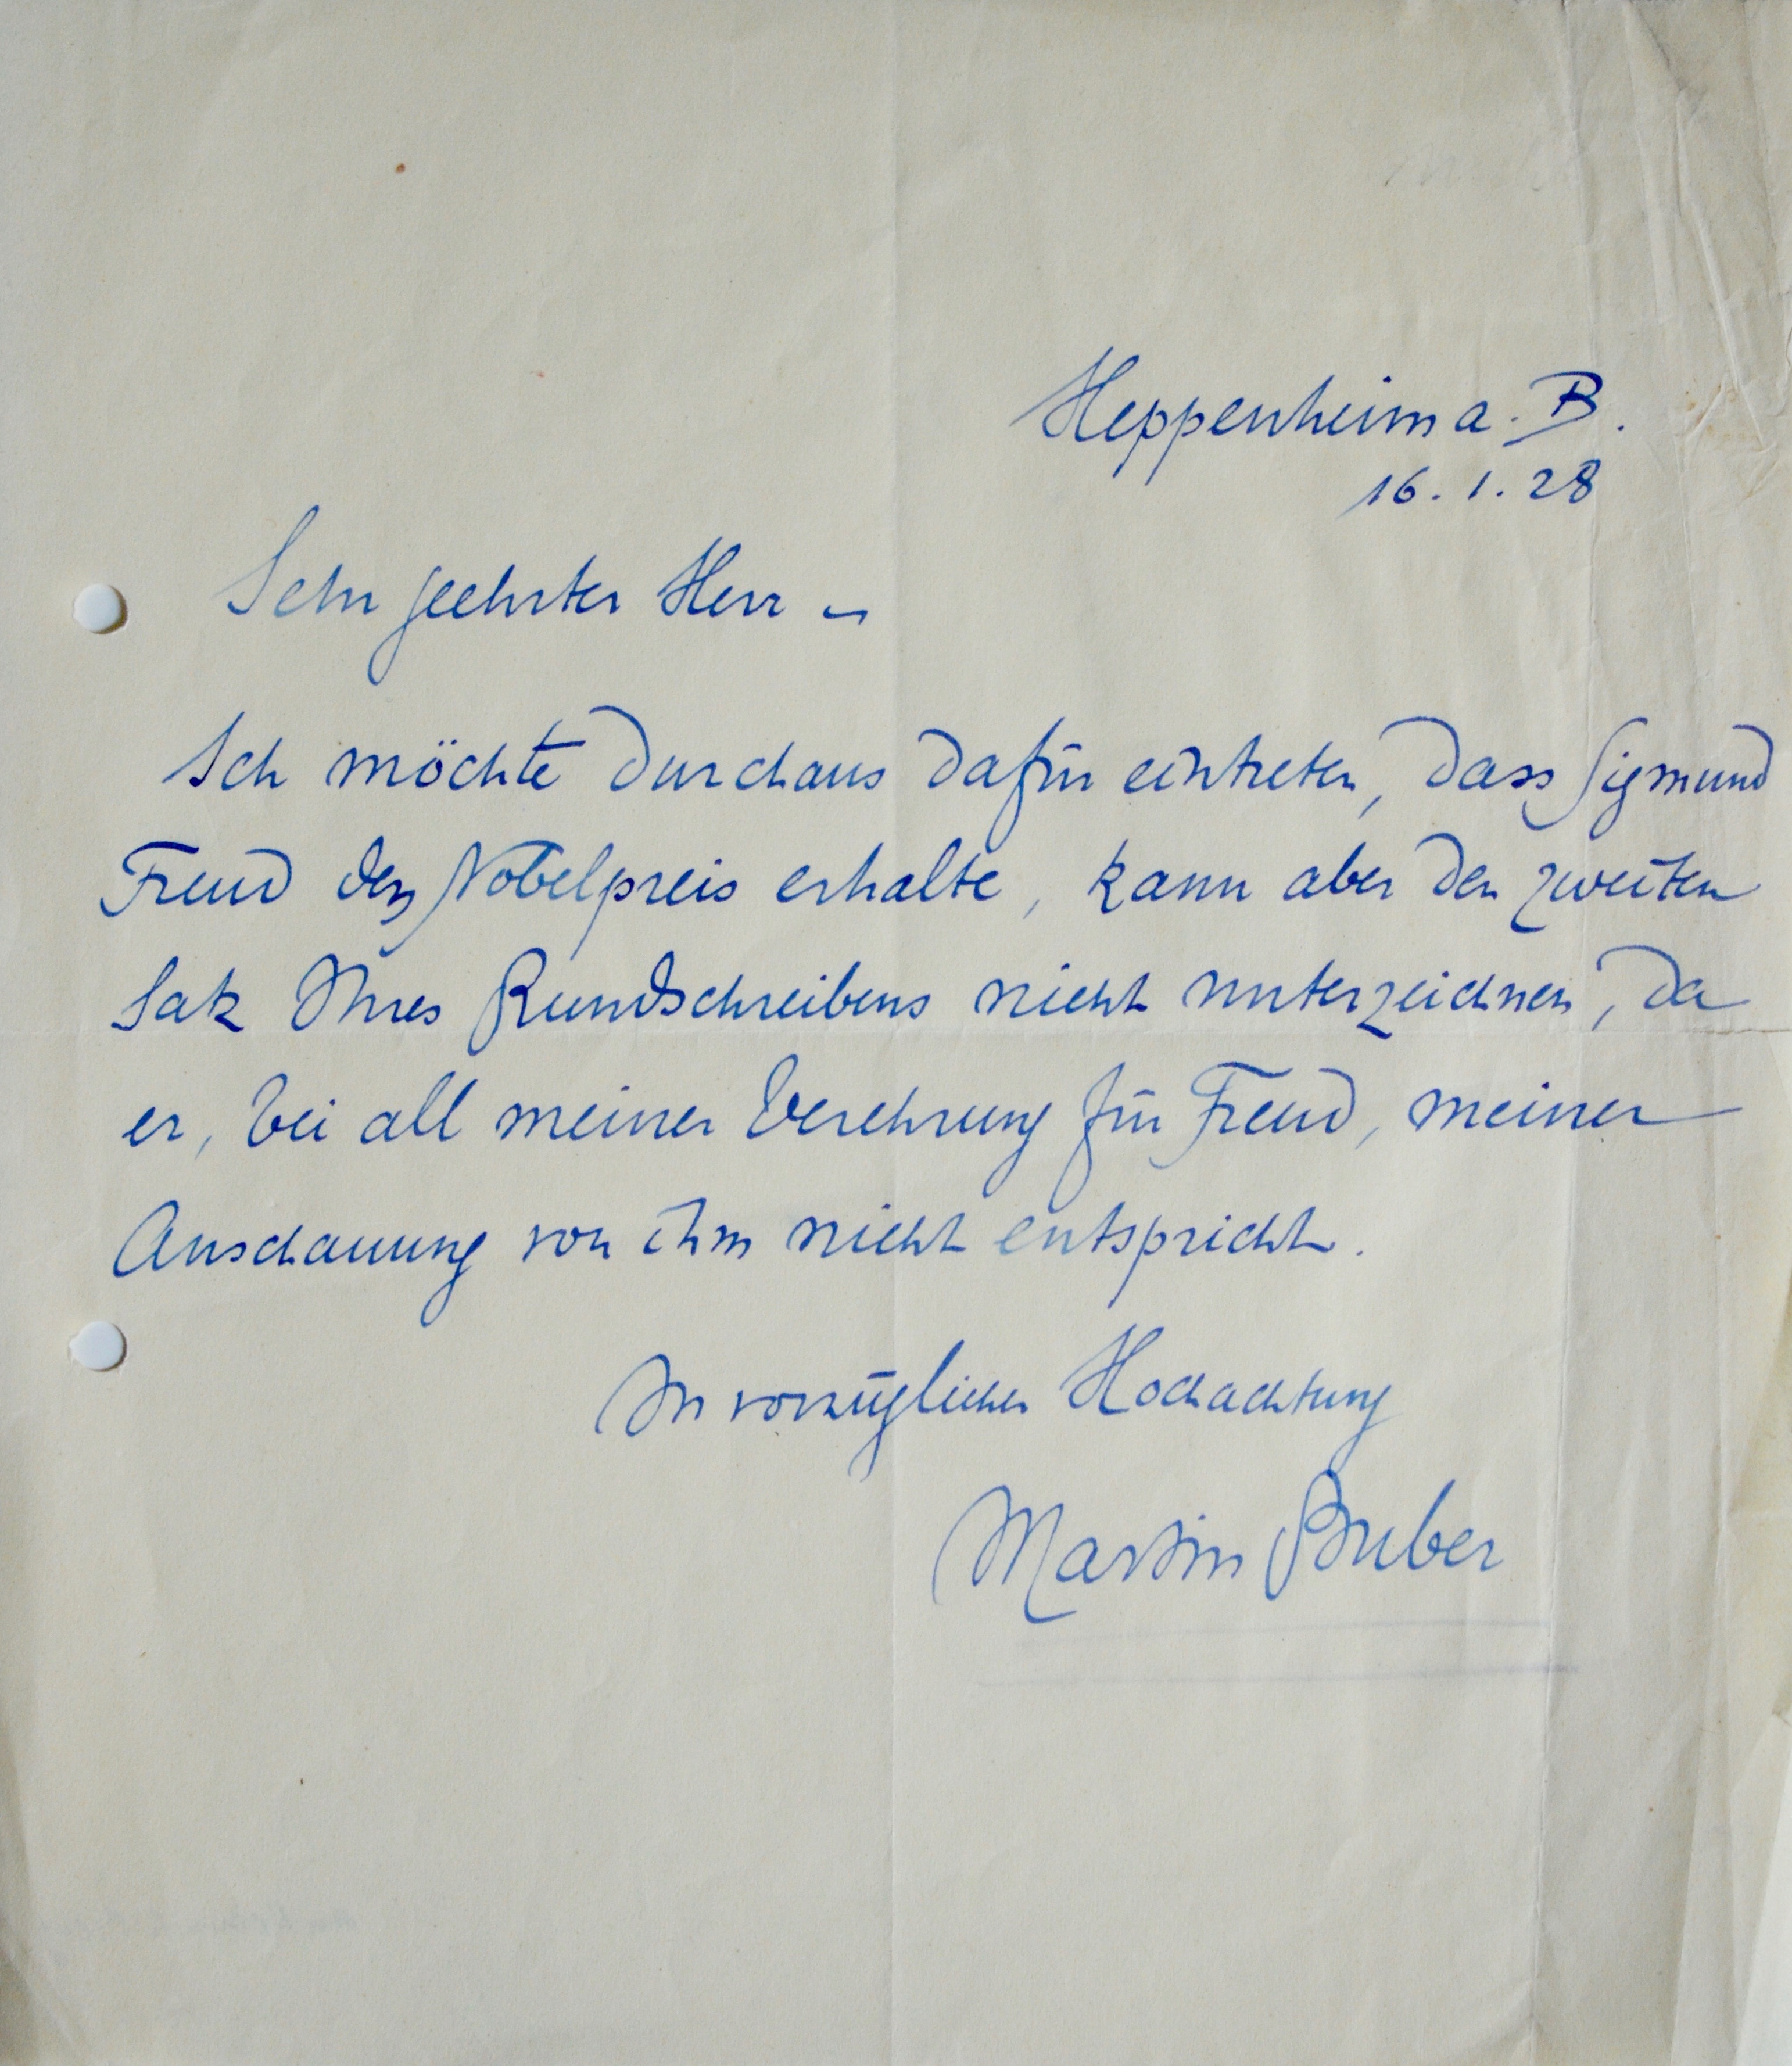 Heppenheim a. B.
16. 1. 28
Sehr geehrter Herr –
Ich möchte durchaus dafür eintreten, dass Sigmund
Freud den Nobelpreis erhalte, kann aber den zweiten
Satz Ihres Rundschreibens nicht unterzeichnen, da
er, bei all meiner Verehrung für Freud, meiner
Anschauung von ihm nicht entspricht.
In vorzüglicher Hochachtung
Martin Buber